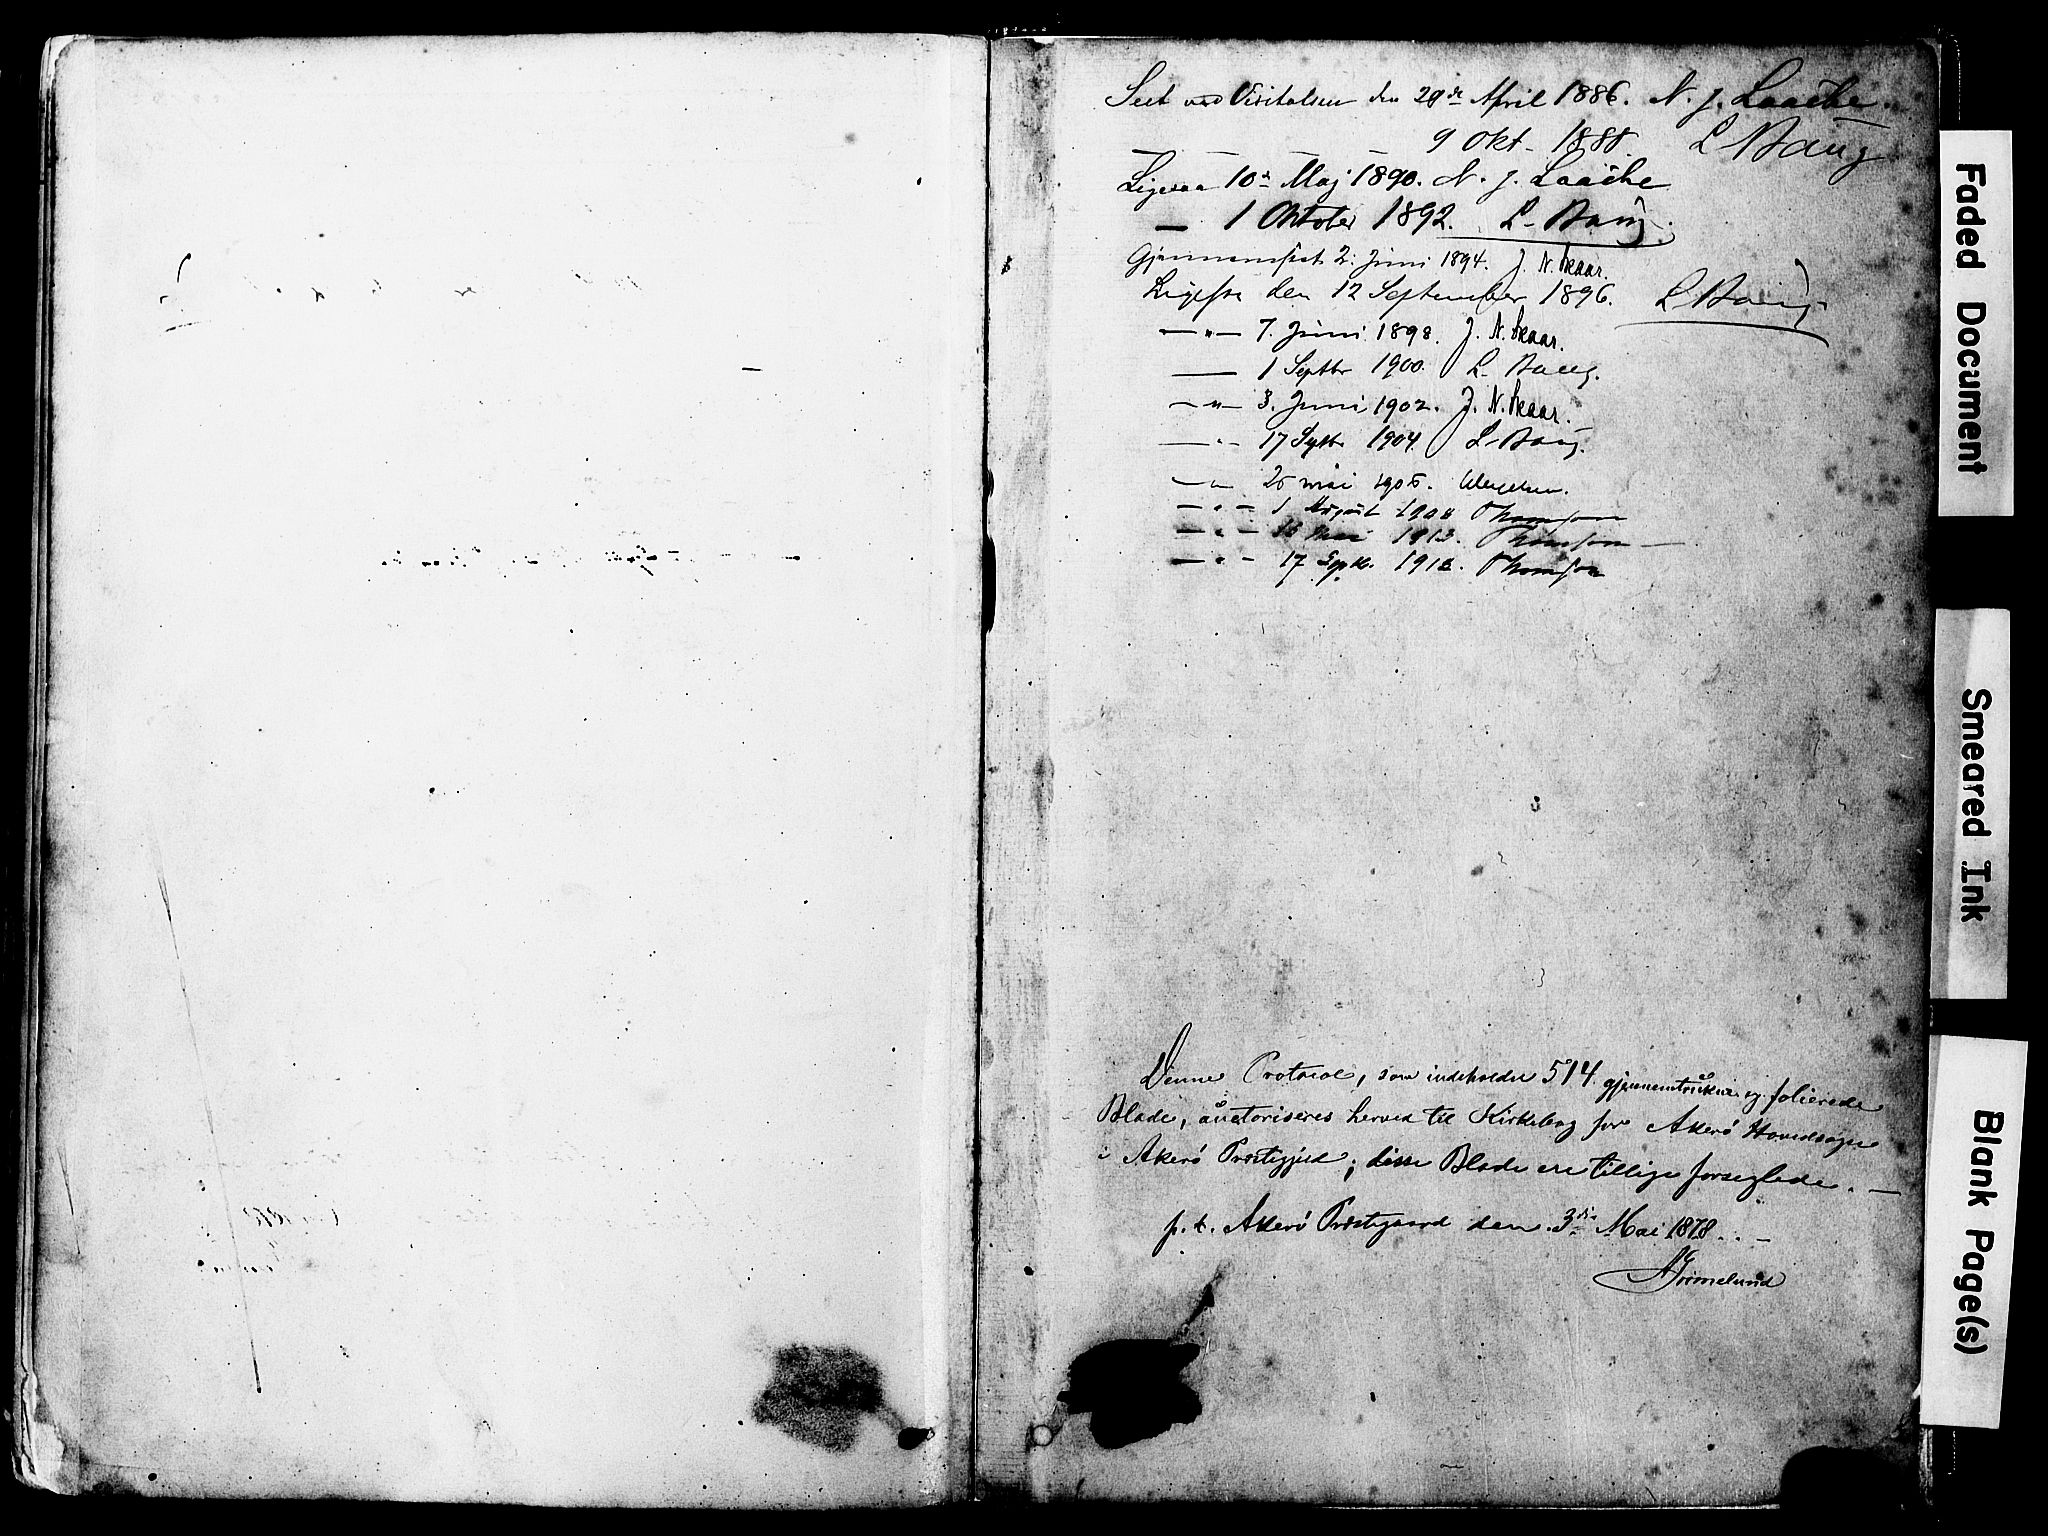 Seet ved Visitatsen den 29de April 1886. N. J. Laache.
— — — 9 Okt. 1888. L Baug
Ligesaa 10de Maj 1890. N. J. Laache
— 1 Oktober 1892. L. Baug.
Gjennemseet 2. Juni 1894. J. N. Skaar.
Ligesaa den 12 September 1896. L Baug
— " — 7. Juni 1898. J. N. Skaar.
— 1 Septbr 1900. L. Baug.
— " — 3. Juni 1902. J. N. Skaar.
— " — 17 Septbr 1904. L. Baug.
— " — mai Wexelsen.
— " — 1 August 1908 Thomson
— " — 1913. Thomson —
— " — 17 Septbr. Thomson
Denne Protocol, som indeholder 514 gjennemtrukne og folierede
Blade, auctoriseres herved til Kirkebog for Akerö Hovedsogn
i Akerö Præstegjeld; disse Blade ere tillige forseglede. —
p. t. Akerö Præstegaard den 3die Mai 1878. —
AGrimelund
Faded Document
Smeared Ink
Blank Page(s)